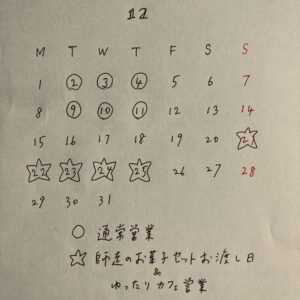 12
M T W T F S S
1 2 3 4 5 6 7
8 9 10 11 12 13 14
15 16 17 18 19 20 21
22 23 24 25 26 27 28
29 30 31
○ 通常営業
☆ 師走のお菓子セットお渡し日
&
ゆったりカフェ営業